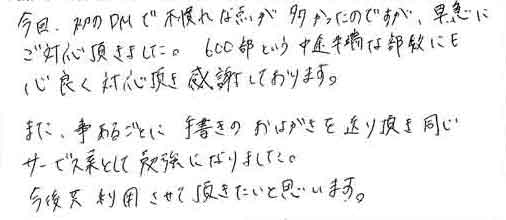 今回、初のDMで不慣れな点が多かったのですが、早急に
ご対応頂きました。600部という中途半端な部数にも
心良く対応頂き感謝しております。
また、事あるごとに手書きのおはがきを送り頂き同じ
サービス業として勉強になりました。
今後共利用させて頂きたいと思います。